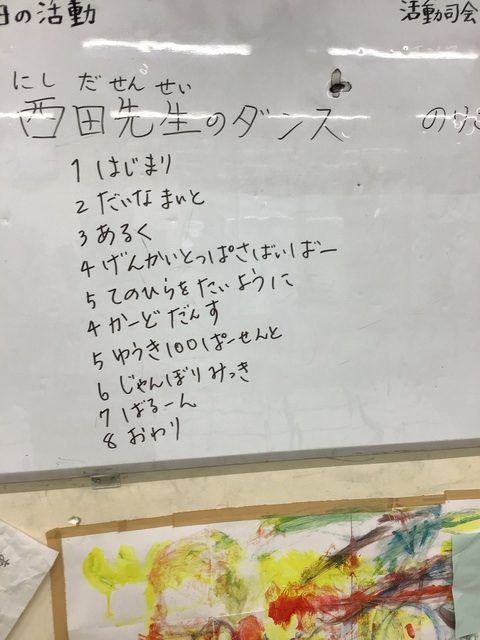 日の活動
活動司会
にし だ せん せい
西田先生のダンス
1 はじまり
2 だいなまいと
3 あるく
4 げんかいとっぱさばいばー
5 てのひらをたいように
4 かーどだんす
5 ゆうき100ぱーせんと
6 じゃんぼりみっき
7 ばるーん
8 おわり